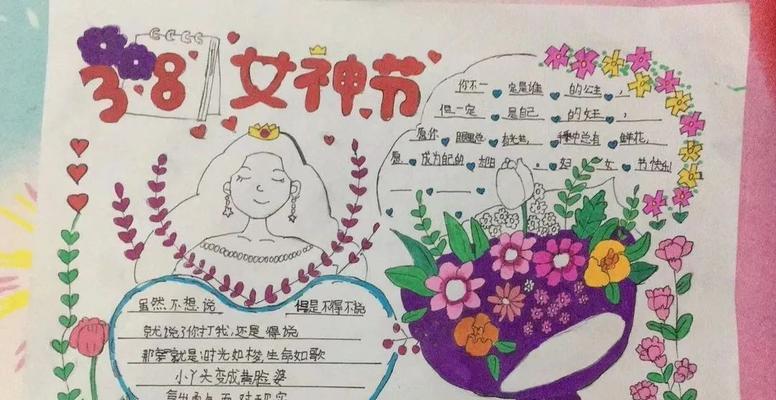 3.8 女神节
你不一定是谁的公主，
但一定是自己的女王，
愿你眼里总有光芒，手中总有鲜花，
愿成为自己的太阳。妇女节快乐
虽然不想说 但是不得不说
就说了你打我，还是得说
那就是时光如梭，生命如歌
小丫头变成黄脸婆